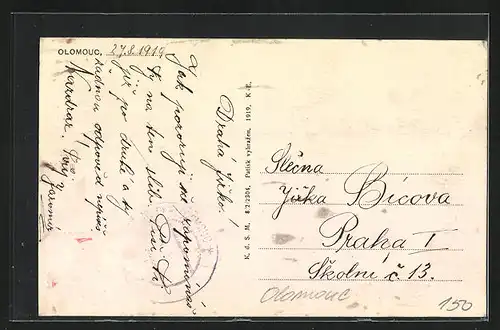 OLOMOUC, 27.8.1919
Drahá Jiko!
Jak pozoruji na zapomínáš
ti na ten slib. Píši Ti
již po druhé a ty
žádnou odpověď nepíšeš
Nazdar. Tvůj
Jaromír
K. d. S. M. 8/2/2304. Patisk vyhražen. 1919.
Slečna
Jika Bícova
Praha I
Školní č 13.
Olomouc
150